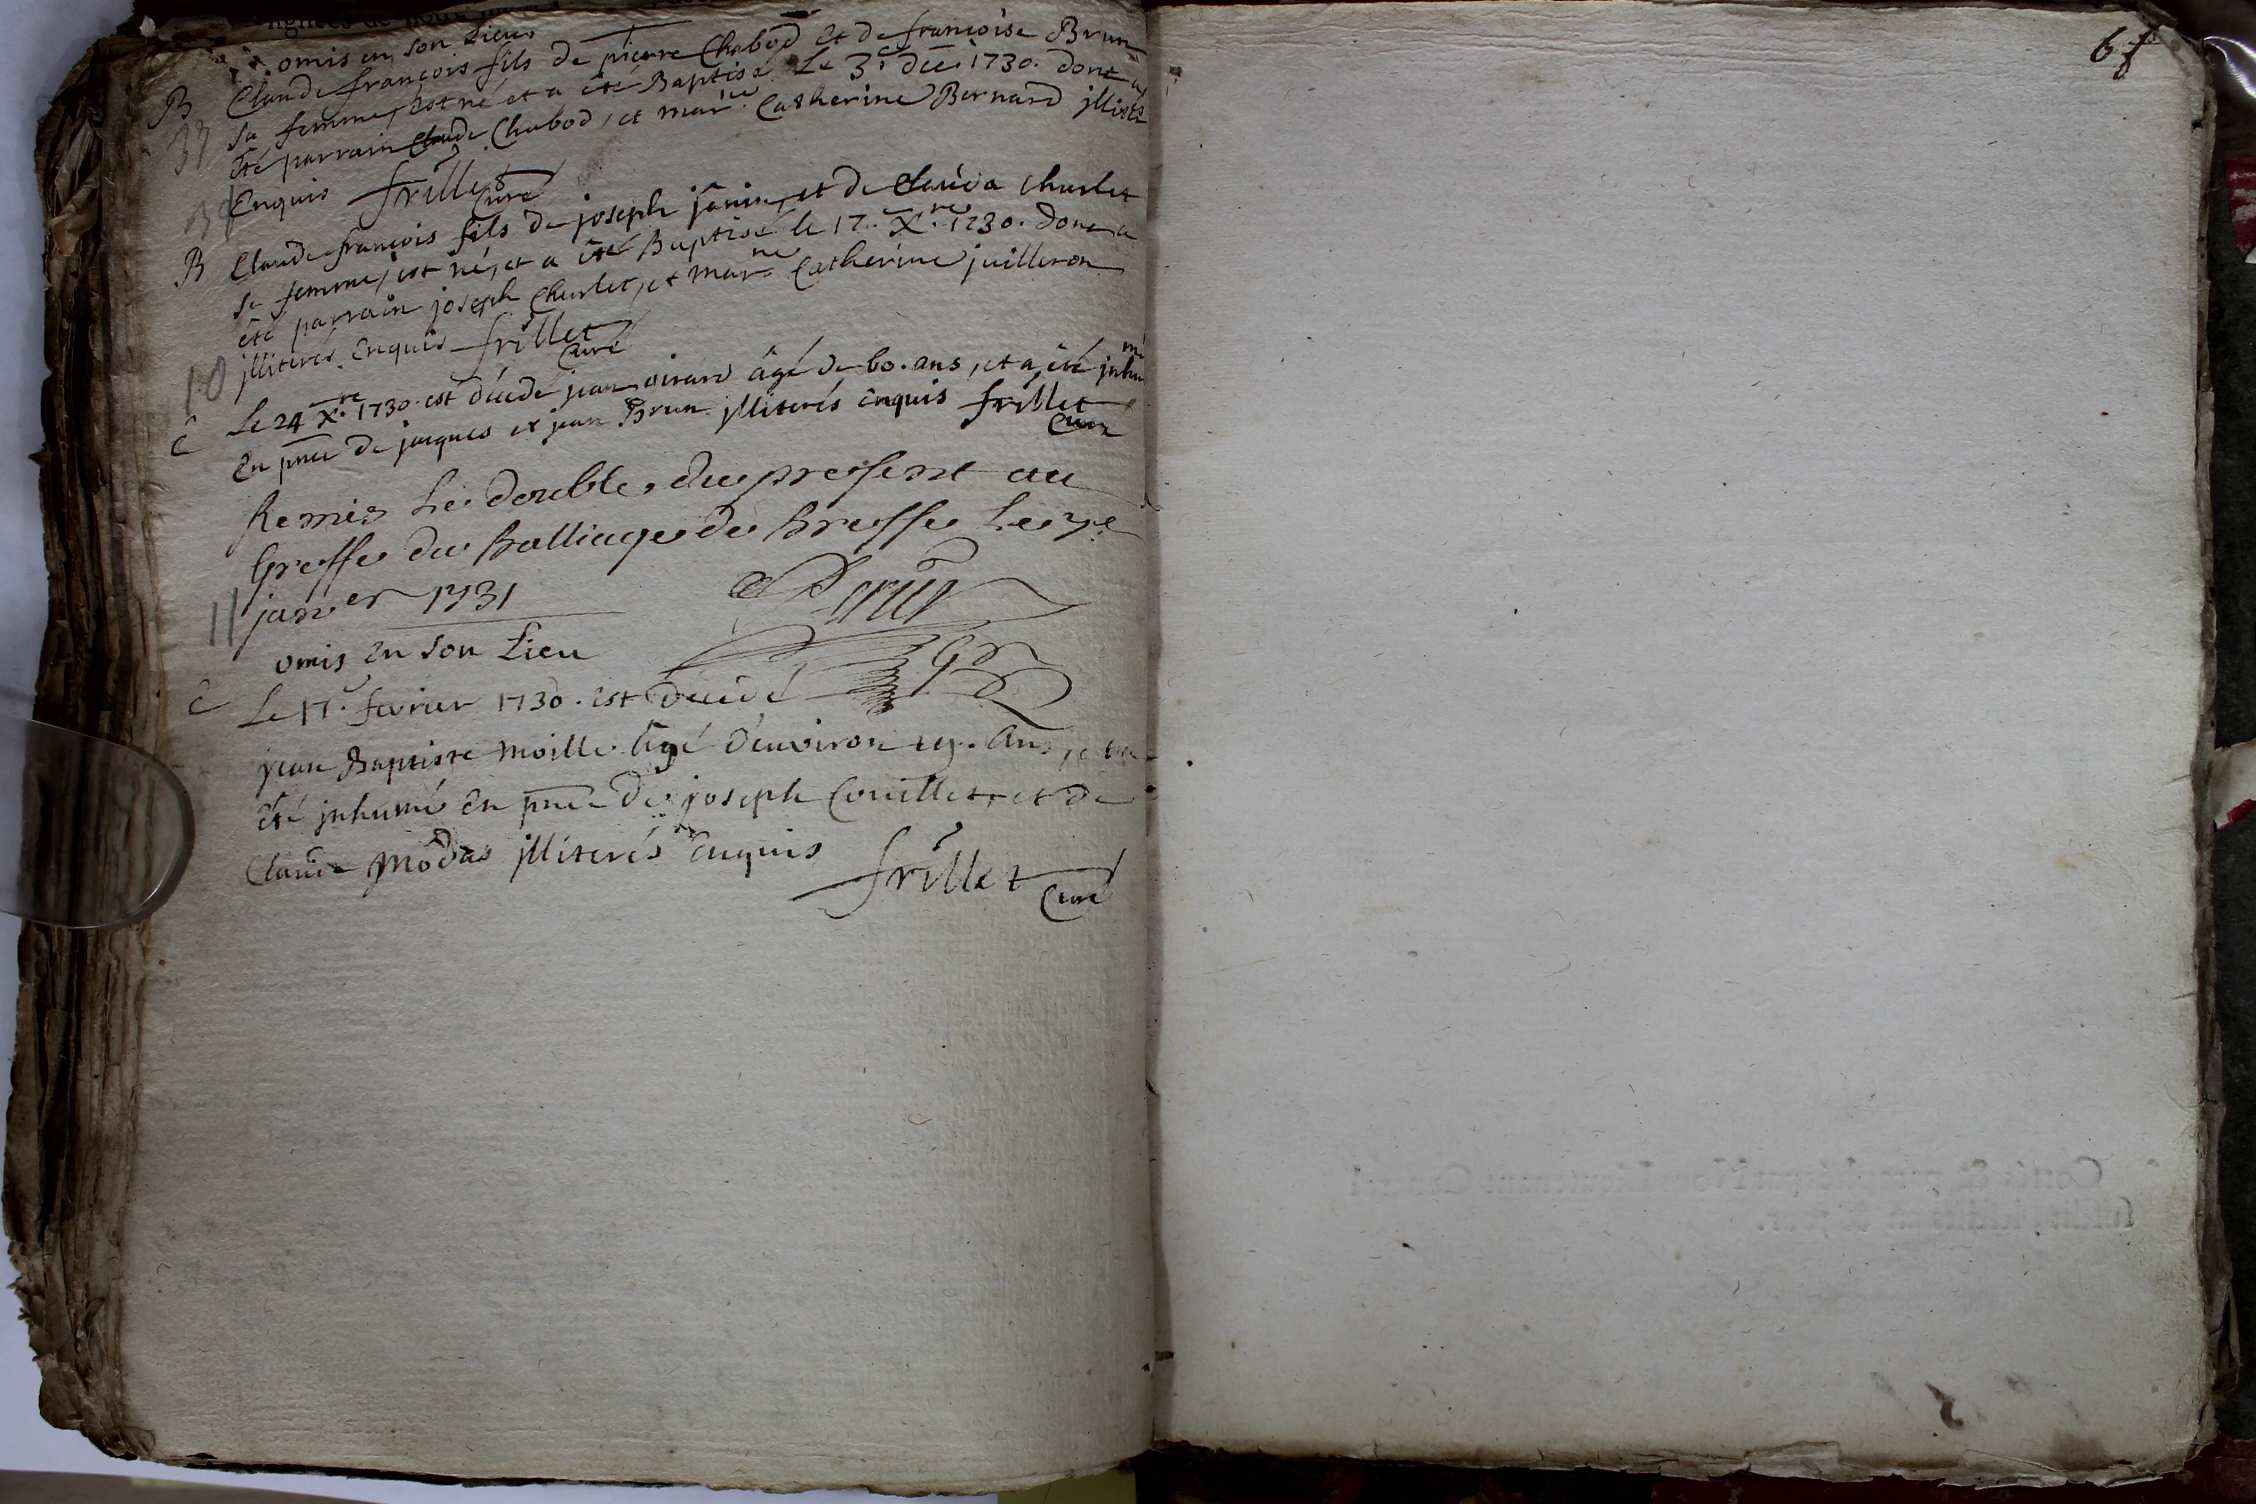 omis en son Lieu
B Claude francois fils de pierre Chabod et de francoise Brun
37 sa femme, est né et a été Baptisé Le 3e. dec. 1730. dont a
été parrain Claude Chabod, et marne Catherine Bernard jllitérés
Enquis frillet
Curé
B Claude francois fils de joseph janin, et de Clauda Churlet
38 sa femme, est né, et a été Baptisé le 17. Xre. 1730. dont a
été parrain joseph Churlet, et marne Catherine juilleron
jllitérés Enquis frillet
Curé
10
C Le 24 Xre. 1730. est décédé jean oirard âgé de 60. ans, et a été jnhumé
En pnce de jacques et jean Brun jllitérés enquis frillet
Curé
Remis Le double du present au
Greffe du Balliage de Bresse Le 7e
11 janver 1731
omis en son Lieu
C Le 17. fevrier 1730. est décédé
jean Baptiste Moille âgé d'environ 19. ans, et a
été jnhumé en pnce de joseph Couillet, et de
Claude Modas jllitérés enquis
frillet
Curé